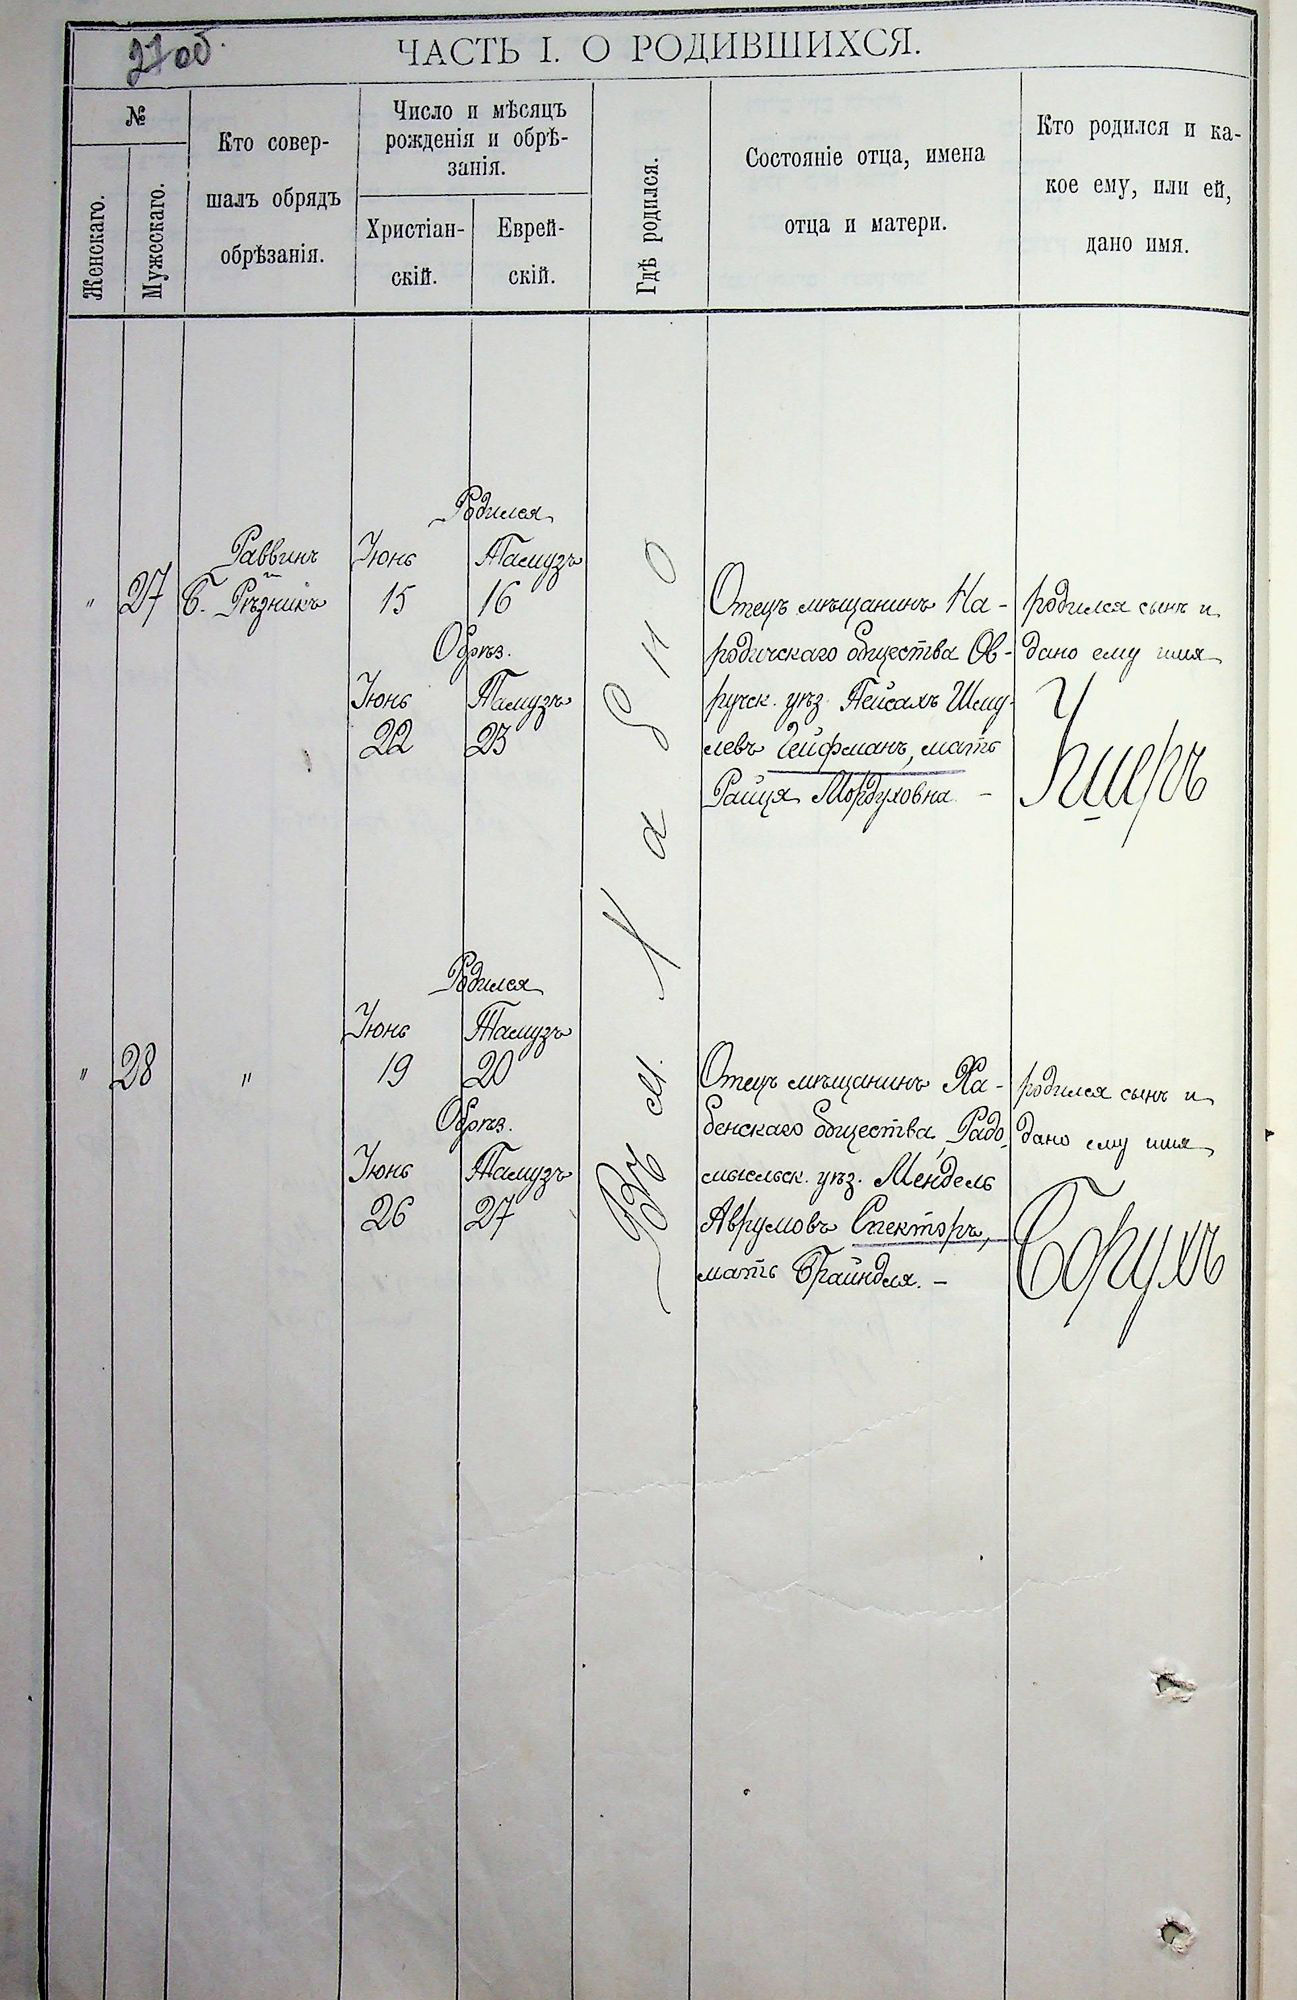 27 об.
ЧАСТЬ I. О РОДИВШИХСЯ.
№
Женскаго.
Мужескаго.
Кто совер-
шалъ обрядъ
обрѣзанія.
Число и мѣсяцъ
рожденія и обрѣ-
занія.
Христіан-
скій.
Еврей-
скій.
Гдѣ родился.
Состояніе отца, имена
отца и матери.
Кто родился и ка-
кое ему, или ей,
дано имя.
Въ м. Хабно
" 27
Раввинъ
Б. Рѣзникъ
Родился
Іюнь Тамузъ
15 16
Обрѣз.
Іюнь Тамузъ
22 23
Отецъ мѣщанинъ На-
родичскаго общества Ов-
ручск. уѣз. Пейсахъ Шму-
левъ Гейфманъ, мать
Райця Мордуховна. -
родился сынъ и
дано ему имя
Ушеръ
" 28 "
Родился
Іюнь Тамузъ
19 20
Обрѣз.
Іюнь Тамузъ
26 27
Отецъ мѣщанинъ Ха-
бенскаго общества, Радо-
мысльск. уѣз. Мендель
Аврумовъ Спекторъ,
мать Брайндля. -
родился сынъ и
дано ему имя
Борухъ